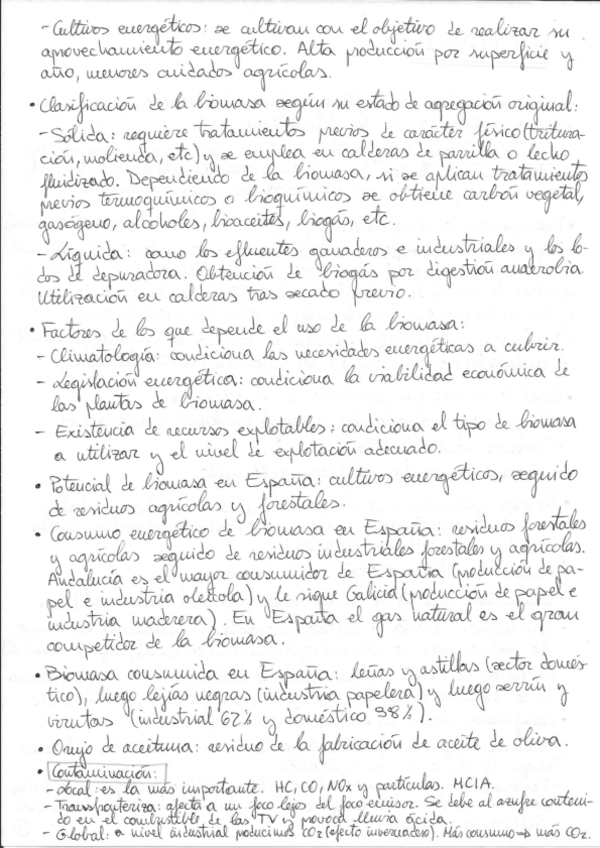 - Cultivos energéticos: se cultivan con el objetivo de realizar su
aprovechamiento energético. Alta producción por superficie y
año, menores cuidados agrícolas.
• Clasificación de la biomasa según su estado de agregación original:
- Sólida: requiere tratamientos previos de carácter físico (tritura-
ción, molienda, etc) y se emplea en calderas de parrilla o lecho
fluidizado. Dependiendo de la biomasa, si se aplican tratamientos
previos termoquímicos o bioquímicos se obtiene carbón vegetal,
gasógeno, alcoholes, bioaceites, biogás, etc.
- Líquida: como los efluentes ganaderos e industriales y los lo-
dos de depuradora. Obtención de biogás por digestión anaerobia.
Utilización en calderas tras secado previo.
• Factores de los que depende el uso de la biomasa:
- Climatología: condiciona las necesidades energéticas a cubrir.
- Legislación energética: condiciona la viabilidad económica de
las plantas de biomasa.
- Existencia de recursos explotables: condiciona el tipo de biomasa
a utilizar y el nivel de explotación adecuado.
• Potencial de biomasa en España: cultivos energéticos, seguido
de residuos agrícolas y forestales.
• Consumo energético de biomasa en España: residuos forestales
y agrícolas seguido de residuos industriales forestales y agrícolas.
Andalucía es el mayor consumidor de España (producción de pa-
pel e industria oleícola) y le sigue Galicia (producción de papel e
industria maderera). En España el gas natural es el gran
competidor de la biomasa.
• Biomasa consumida en España: leñas y astillas (sector domés-
tico), luego lejías negras (industria papelera) y luego serrín y
virutas (industrial 62% y doméstico 38%).
• Orujo de aceituna: residuo de la fabricación de aceite de oliva.
• Contaminación:
- Local: es la más importante. HC, CO, NOx y partículas. MCIA.
- Transfronteriza: afecta a un foco lejos del foco emisor. Se debe al azufre conteni-
do en el combustible de las TV y provoca lluvia ácida.
- Global: a nivel industrial producimos CO2 (efecto invernadero). Más consumo → más CO2.